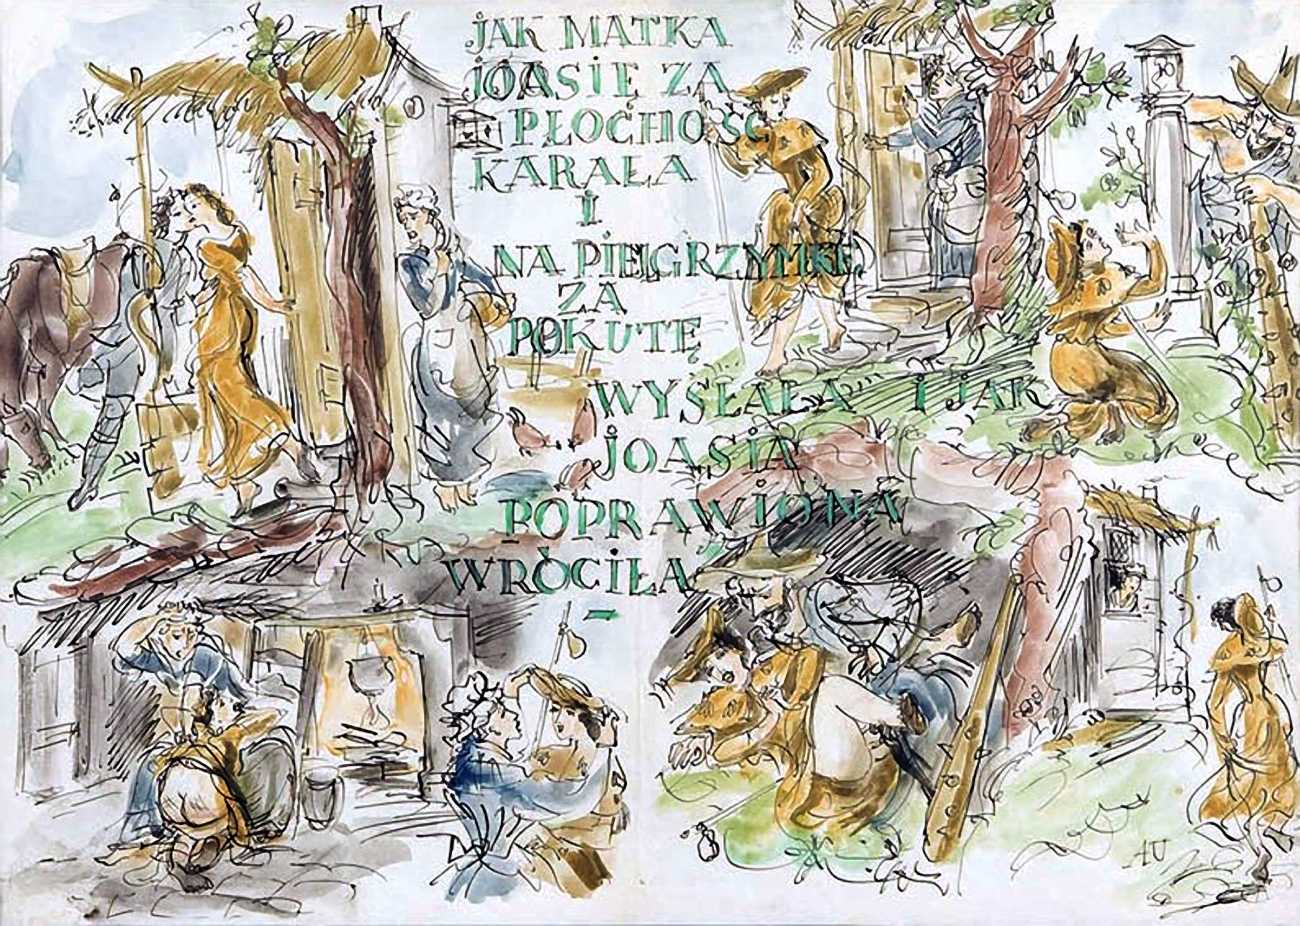 JAK MATKA
JOASIĘ ZA
PŁOCHOŚĆ
KARAŁA
I
NA PIELGRZYMKĘ
ZA
POKUTĘ
WYSŁAŁA I JAK
JOASIA
POPRAWIONA
WRÓCIŁA
AU